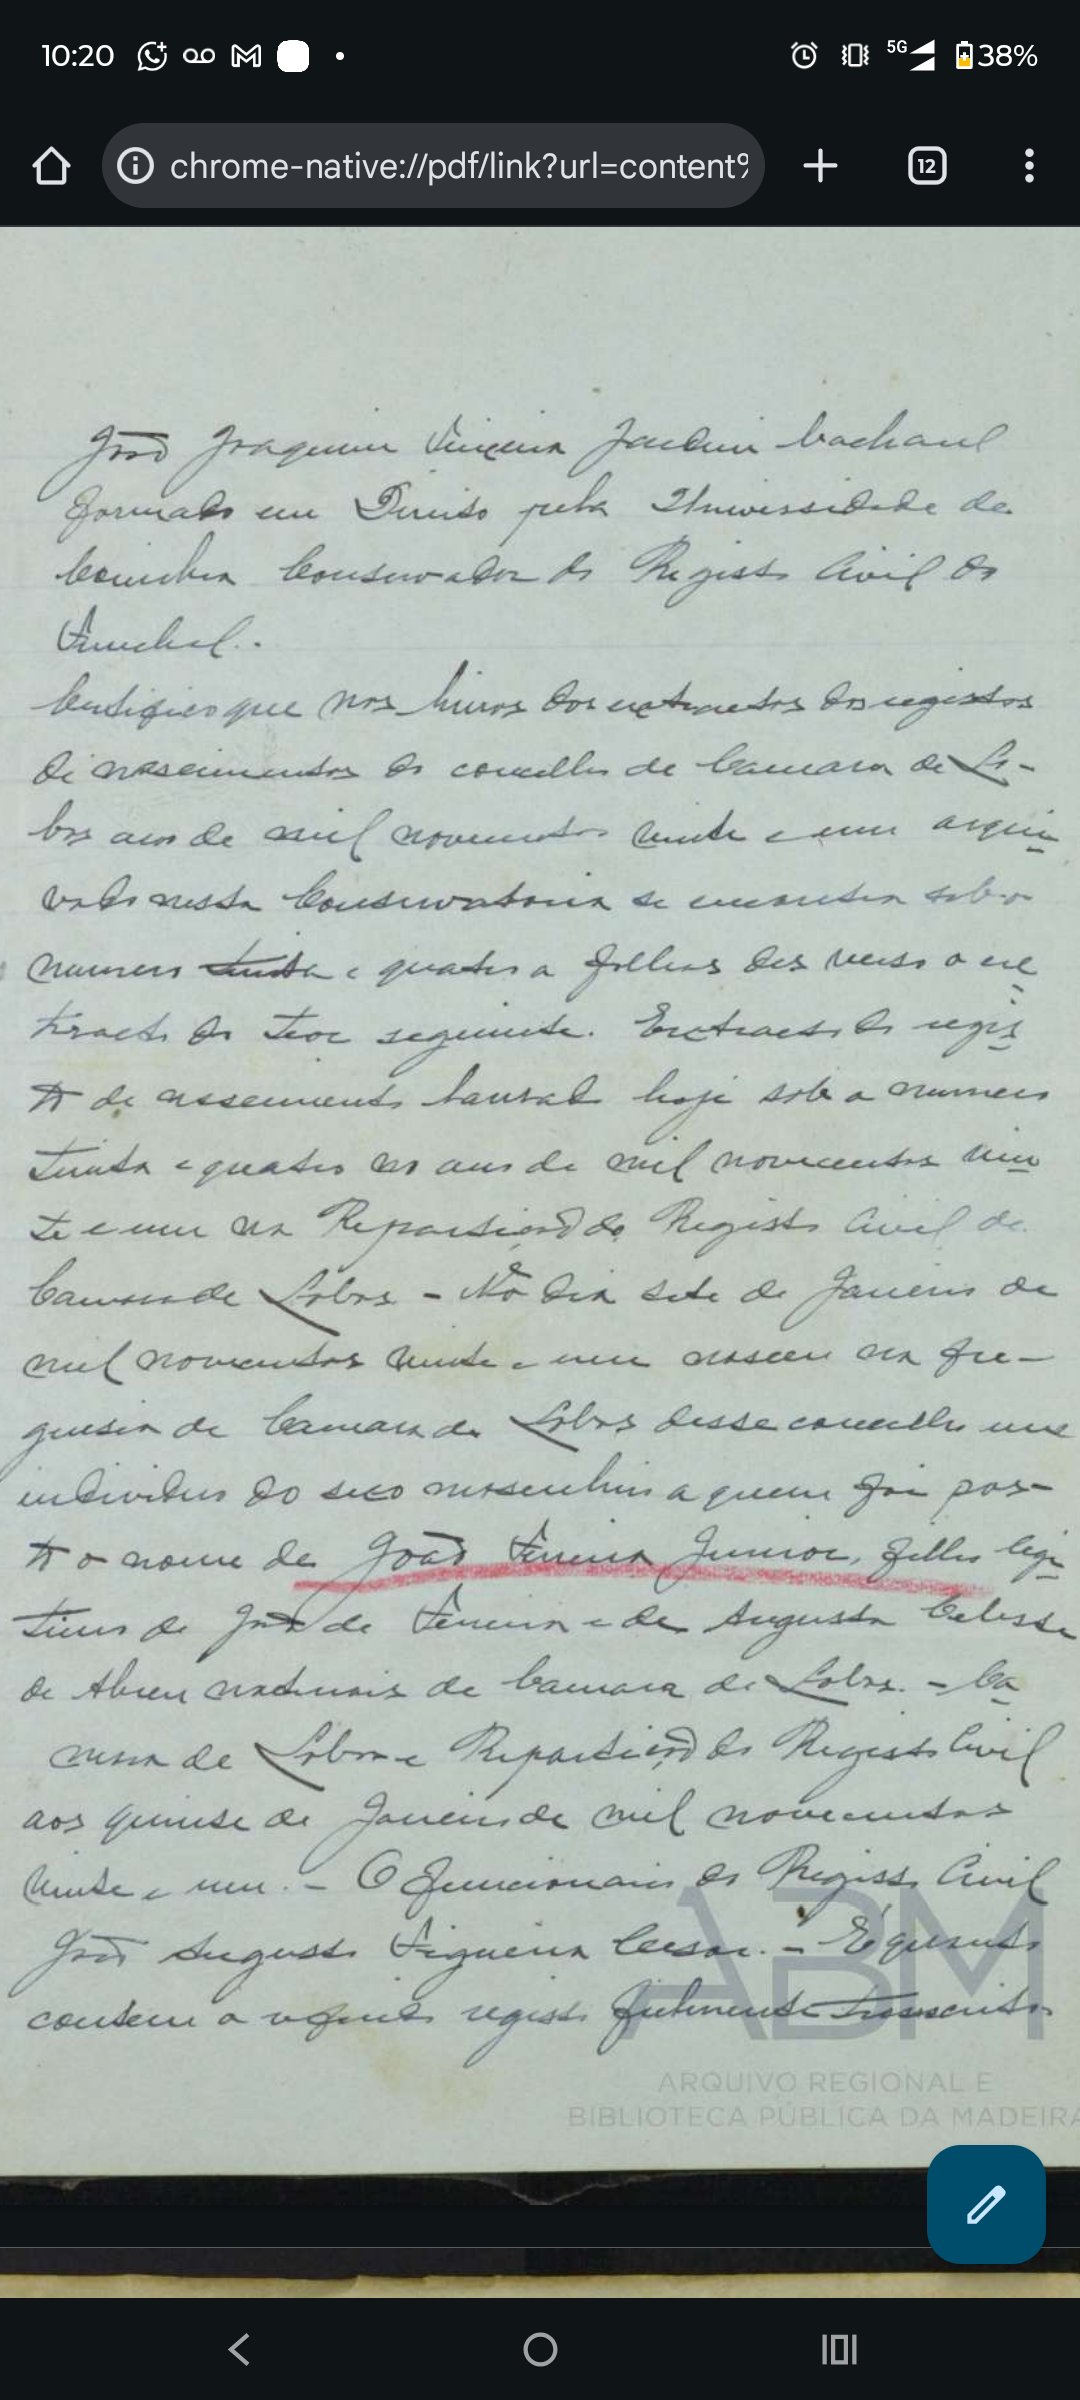 10:20
5G
38%
chrome-native://pdf/link?url=content%
12
João Joaquim Teixeira Jardim bacharel
formado em Direito pela Universidade de
Coimbra Conservador do Registo Civil do
Funchal.
Certifico que nos livros dos extractos dos registos
de nascimentos do concelho de Camara de Lo-
bos ano de mil novecentos vinte e um arqui
vado nesta Conservatoria se encontra sob o
numero trinta e quatro a folhas dez verso o ex
tracto do teor seguinte. Extracto do regis
to de nascimento lavrado hoje sob o numero
trinta e quatro no ano de mil novecentos vin
te e um na Repartição do Registo Civil de
Camara de Lobos - No dia sete de Janeiro de
mil novecentos vinte e um nasceu na fre-
guesia de Camara de Lobos desse concelho um
individuo do sexo masculino a quem foi pos-
to o nome de João Junior, filho legi
timo de João de e de Augusta
de Abreu naturais de Camara de Lobos. - Ca
mara de Lobos e Repartição do Registo Civil
aos quinse de Janeiro de mil novecentos
vinte e um. - O funcionario do Registo Civil
João Augusto Figueira Cesar. - É quanto
contem o referido registo fielmente transcrito
ABM
ARQUIVO REGIONAL E
BIBLIOTECA PÚBLICA DA MADEIRA